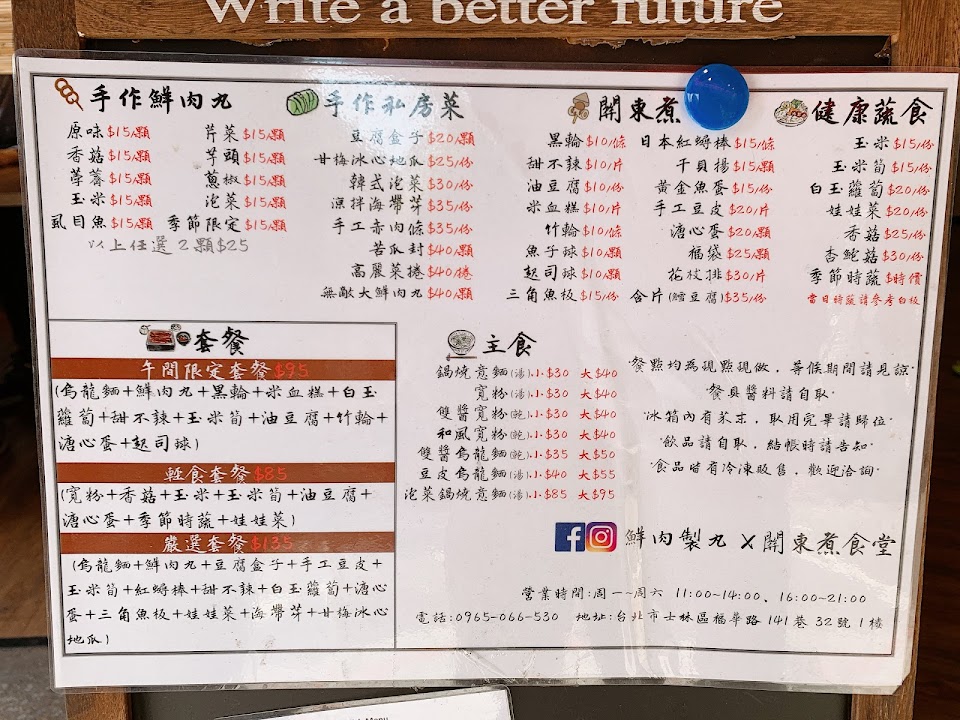 Write a better future
手作鮮肉丸
原味$15/顆 芹菜$15/顆
香菇$15/顆 芋頭$15/顆
荸薺$15/顆 蔥椒$15/顆
玉米$15/顆 泡菜$15/顆
虱目魚$15/顆 季節限定$15/顆
以上任選2顆$25
手作私房菜
豆腐盒子$20/顆
甘梅冰心地瓜$25/份
韓式泡菜$30/份
涼拌海帶芽$35/份
手工赤肉條$35/份
苦瓜封$40/顆
高麗菜捲$40/捲
無敵大鮮肉丸$40/顆
關東煮
黑輪$10/條 日本紅蟳棒$15/條
甜不辣$10/片 干貝揚$15/顆
油豆腐$10/份 黃金魚蛋$15/份
米血糕$10/片 手工豆皮$20/片
竹輪$10/條 溏心蛋$20/顆
魚子球$10/顆 福袋$25/顆
起司球$10/顆 花枝排$30/片
三角魚板$15/份 含片(鱈豆腐)$35/份
健康蔬食
玉米$15/份
玉米筍$15/份
白玉蘿蔔$20/份
娃娃菜$20/份
香菇$25/份
杏鮑菇$30/份
季節時蔬$時價
當日時蔬請參考白板
套餐
午間限定套餐$95
(烏龍麵+鮮肉丸+黑輪+米血糕+白玉
蘿蔔+甜不辣+玉米筍+油豆腐+竹輪+
溏心蛋+起司球)
輕食套餐$85
(寬粉+香菇+玉米+玉米筍+油豆腐+
溏心蛋+季節時蔬+娃娃菜)
嚴選套餐$135
(烏龍麵+鮮肉丸+豆腐盒子+手工豆皮+
玉米筍+紅蟳棒+甜不辣+白玉蘿蔔+溏心
蛋+三角魚板+娃娃菜+海帶芽+甘梅冰心
地瓜)
主食
鍋燒意麵(湯).小$30 大$40
寬粉(湯).小$30 大$40
雙醬寬粉(乾).小$30 大$40
和風寬粉(乾).小$30 大$40
雙醬烏龍麵(乾).小$35 大$50
豆皮烏龍麵(湯).小$40 大$55
泡菜鍋燒意麵(湯).小$85 大$95
·餐點均為現點現做，等候期間請見諒·
·餐具醬料請自取·
·冰箱內有茶京，取用完畢請歸位·
·飲品請自取，結帳時請告知·
·食品皆有冷凍販售，歡迎洽詢·
鮮肉製丸 X 關東煮食堂
營業時間:周一~周六 11:00~14:00、16:00~21:00
電話:0965-066-530 地址:台北市士林區福華路141巷32號1樓